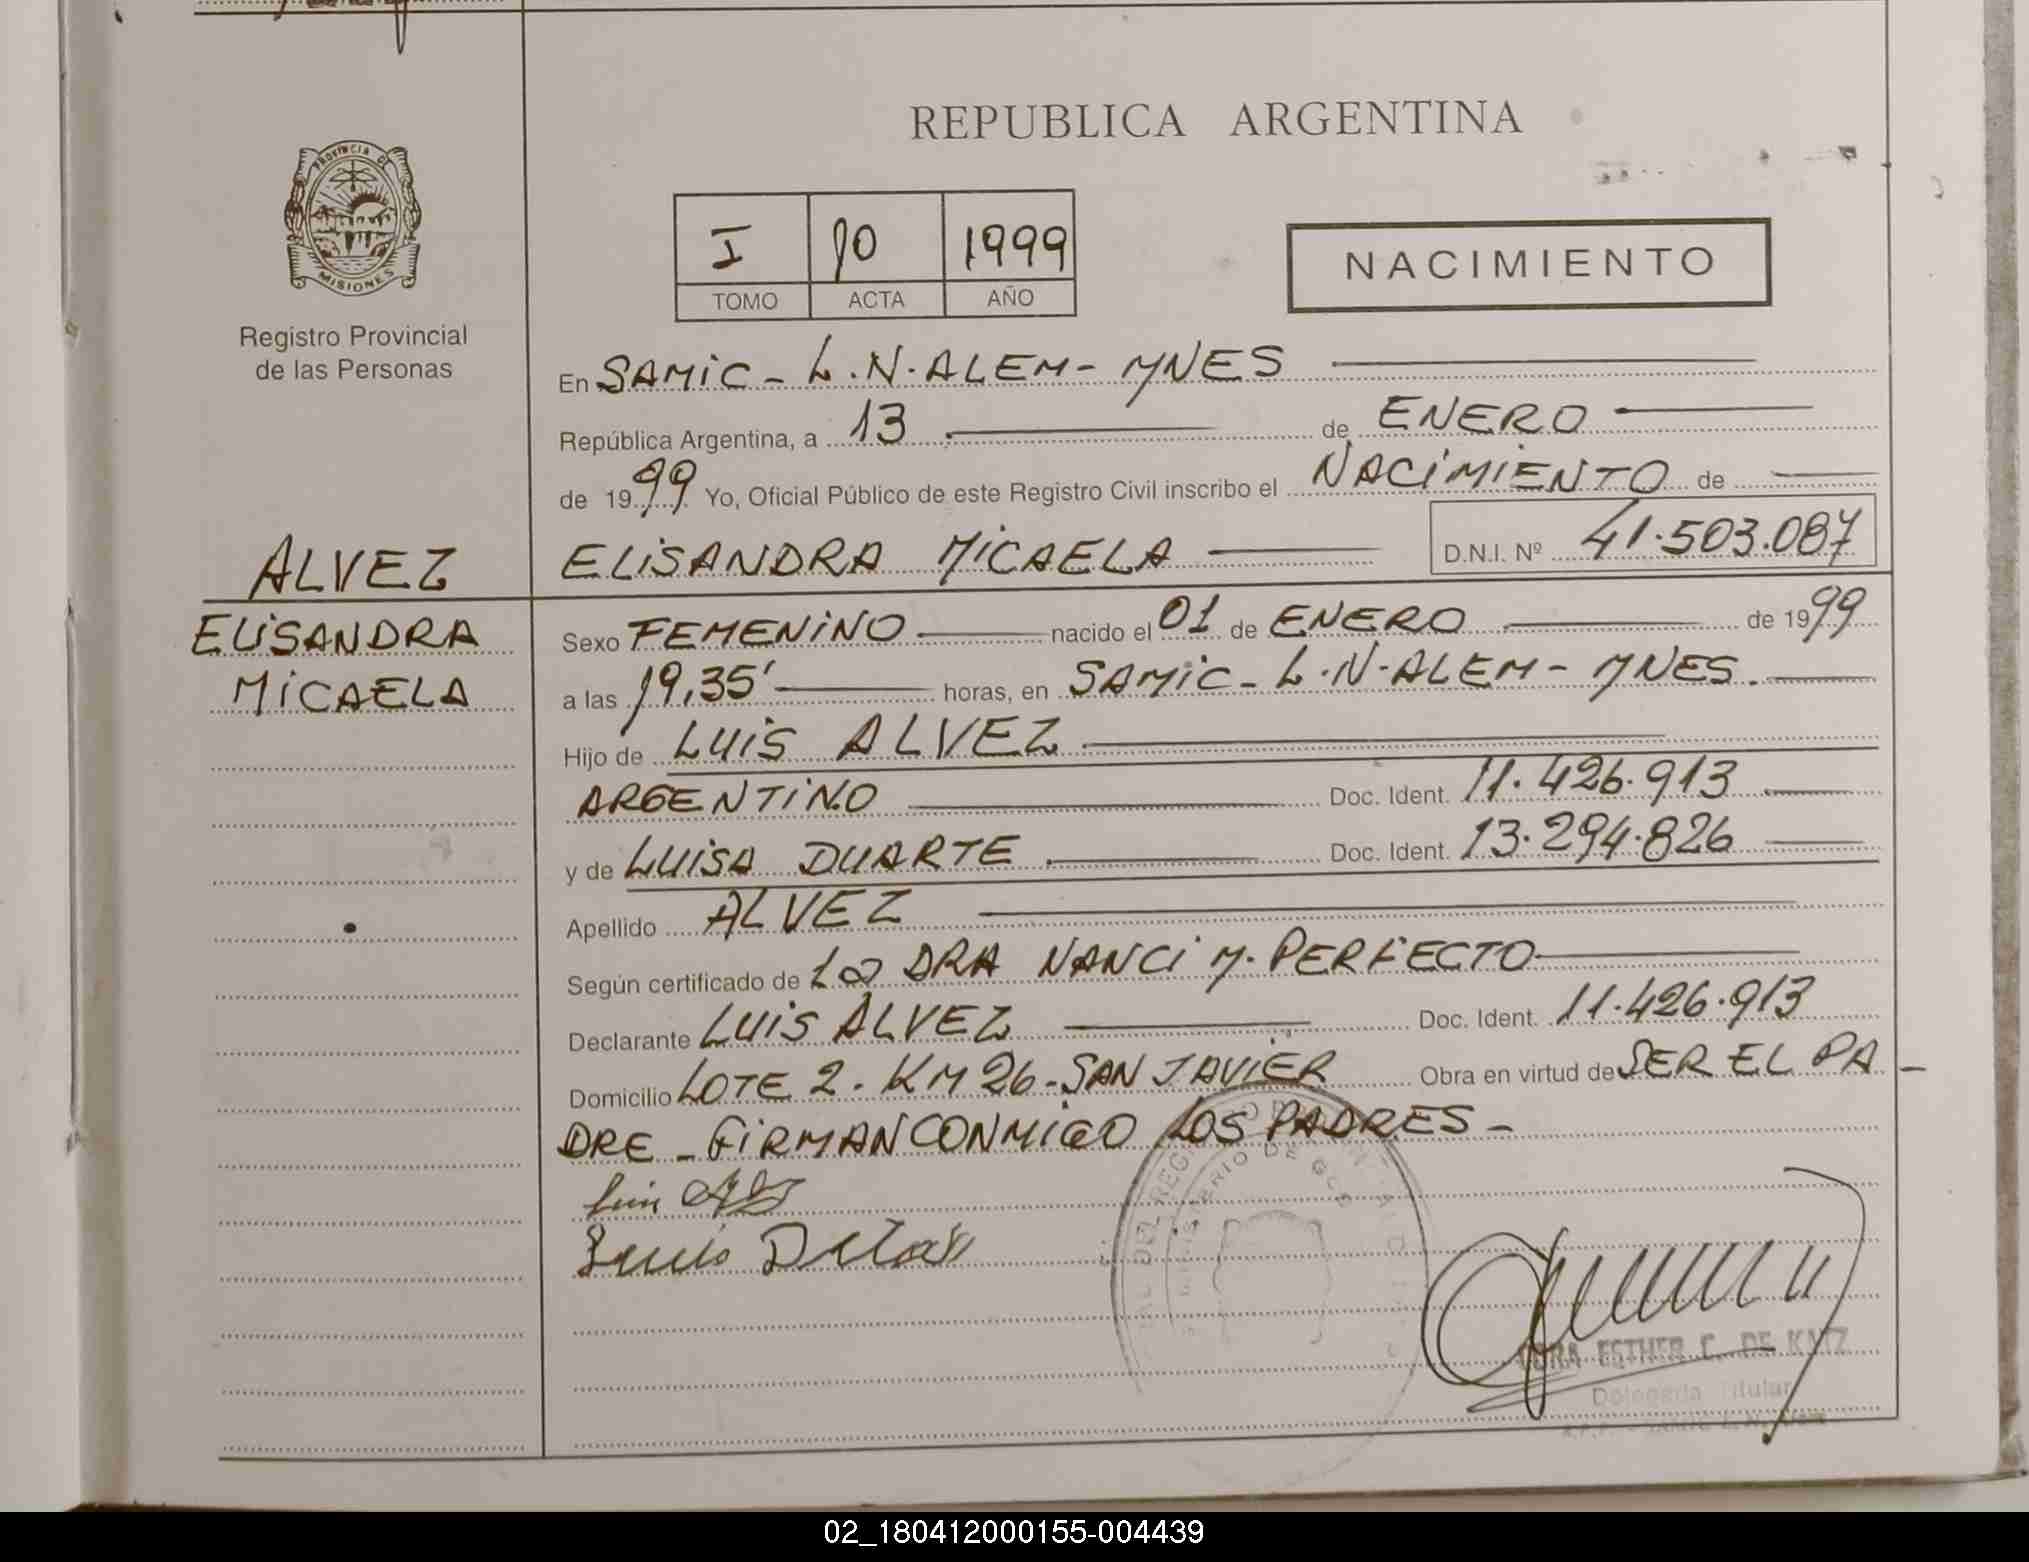 REPUBLICA ARGENTINA
PROVINCIA DE
MISIONES
I 10 1999
TOMO ACTA AÑO
NACIMIENTO
Registro Provincial
de las Personas
En SAMIC - L.N. ALEM - MNES
República Argentina, a 13 de ENERO
de 1999 Yo, Oficial Público de este Registro Civil inscribo el NACIMIENTO de
ALVEZ ELISANDRA MICAELA D.N.I. Nº 41.503.087
ELISANDRA
MICAELA
Sexo FEMENINO nacido el 01 de ENERO de 1999
a las 19,35' horas, en SAMIC - L.N. ALEM - MNES.
Hijo de LUIS ALVEZ
ARGENTINO Doc. Ident. 11.426.913
y de LUISA DUARTE Doc. Ident. 13.294.826
Apellido ALVEZ
Según certificado de La DRA NANCI M. PERFECTO
Declarante LUIS ALVEZ Doc. Ident. 11.426.913
Domicilio LOTE 2. KM 26 - SAN JAVIER Obra en virtud de SER EL PA -
DRE - FIRMAN CONMIGO LOS PADRES -
ESTHER C. DE KATZ
Titular
02_180412000155-004439